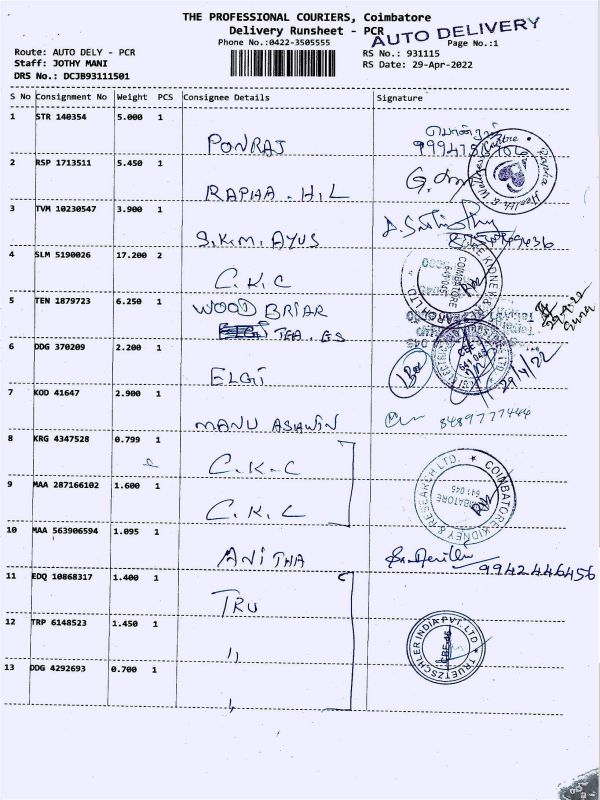 THE PROFESSIONAL COURIERS, Coimbatore
Delivery Runsheet - PCR
AUTO DELIVERY
Phone No.:0422-3505555
Page No.:1
Route: AUTO DELY - PCR
RS No.: 931115
Staff: JOTHY MANI
RS Date: 29-Apr-2022
DRS No.: DCJB93111501
S No Consignment No Weight PCS Consignee Details Signature
1 STR 140354 5.000 1
PONRAJ
2 RSP 1713511 5.450 1
RAPHA . H.L
3 TVM 10230547 3.900 1
S.K.M. AYUS
4 SLM 5190026 17.200 2
C.K.C
5 TEN 1879723 6.250 1
WOOD BRIAR
TEA . ES
6 DDG 370209 2.200 1
ELGI
1 Box
29/4/22
7 KOD 41647 2.900 1
MANU ASHWIN
8489777444
8 KRG 4347528 0.799 1
C.K.C
9 MAA 287166102 1.600 1
C.K.C
COIMBATORE KIDNEY & RESEARCH LTD.
COIMBATORE
641 045
10 MAA 563906594 1.095 1
ANITHA
9942446456
11 EDQ 10868317 1.400 1
TRU
12 TRP 6148523 1.450 1
"
TRUETZSCHLER INDIA PVT. LTD
13 DDG 4292693 0.700 1